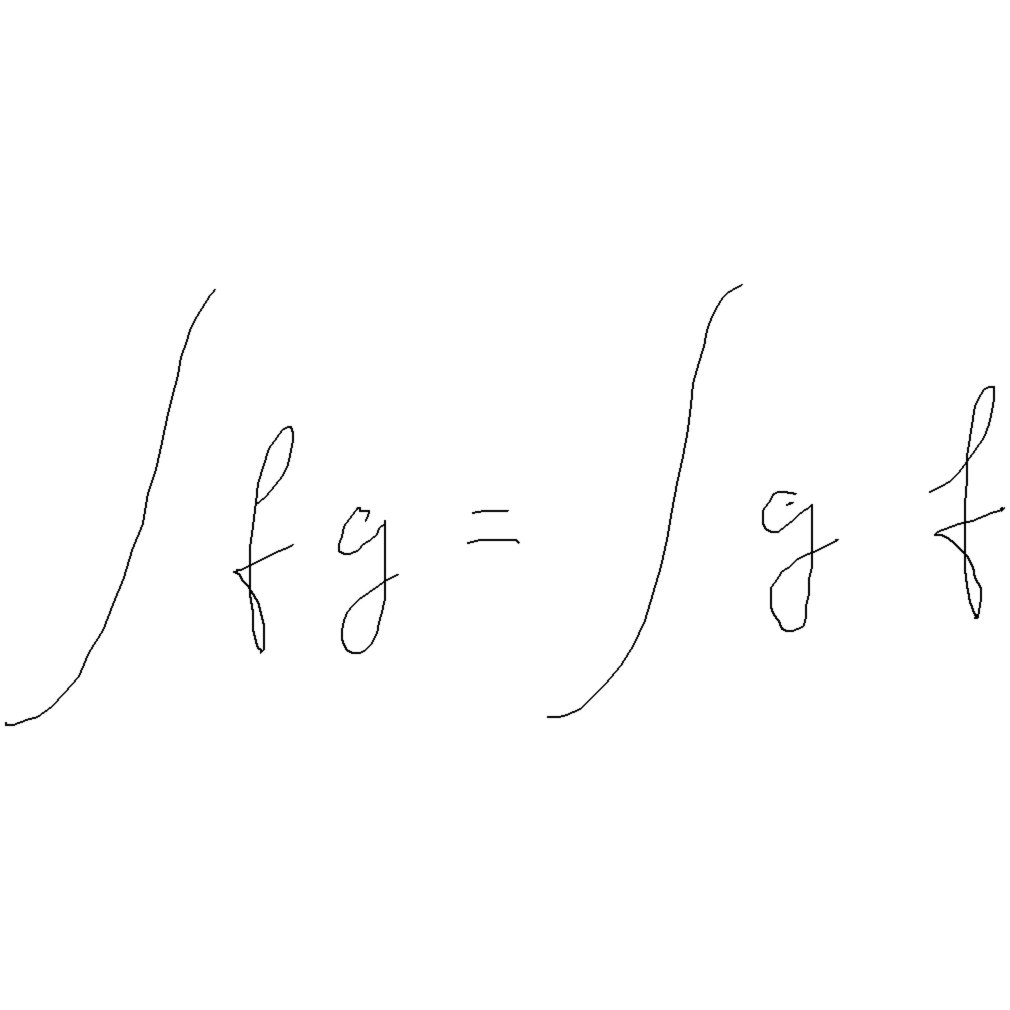 ∫ f g = ∫ g f